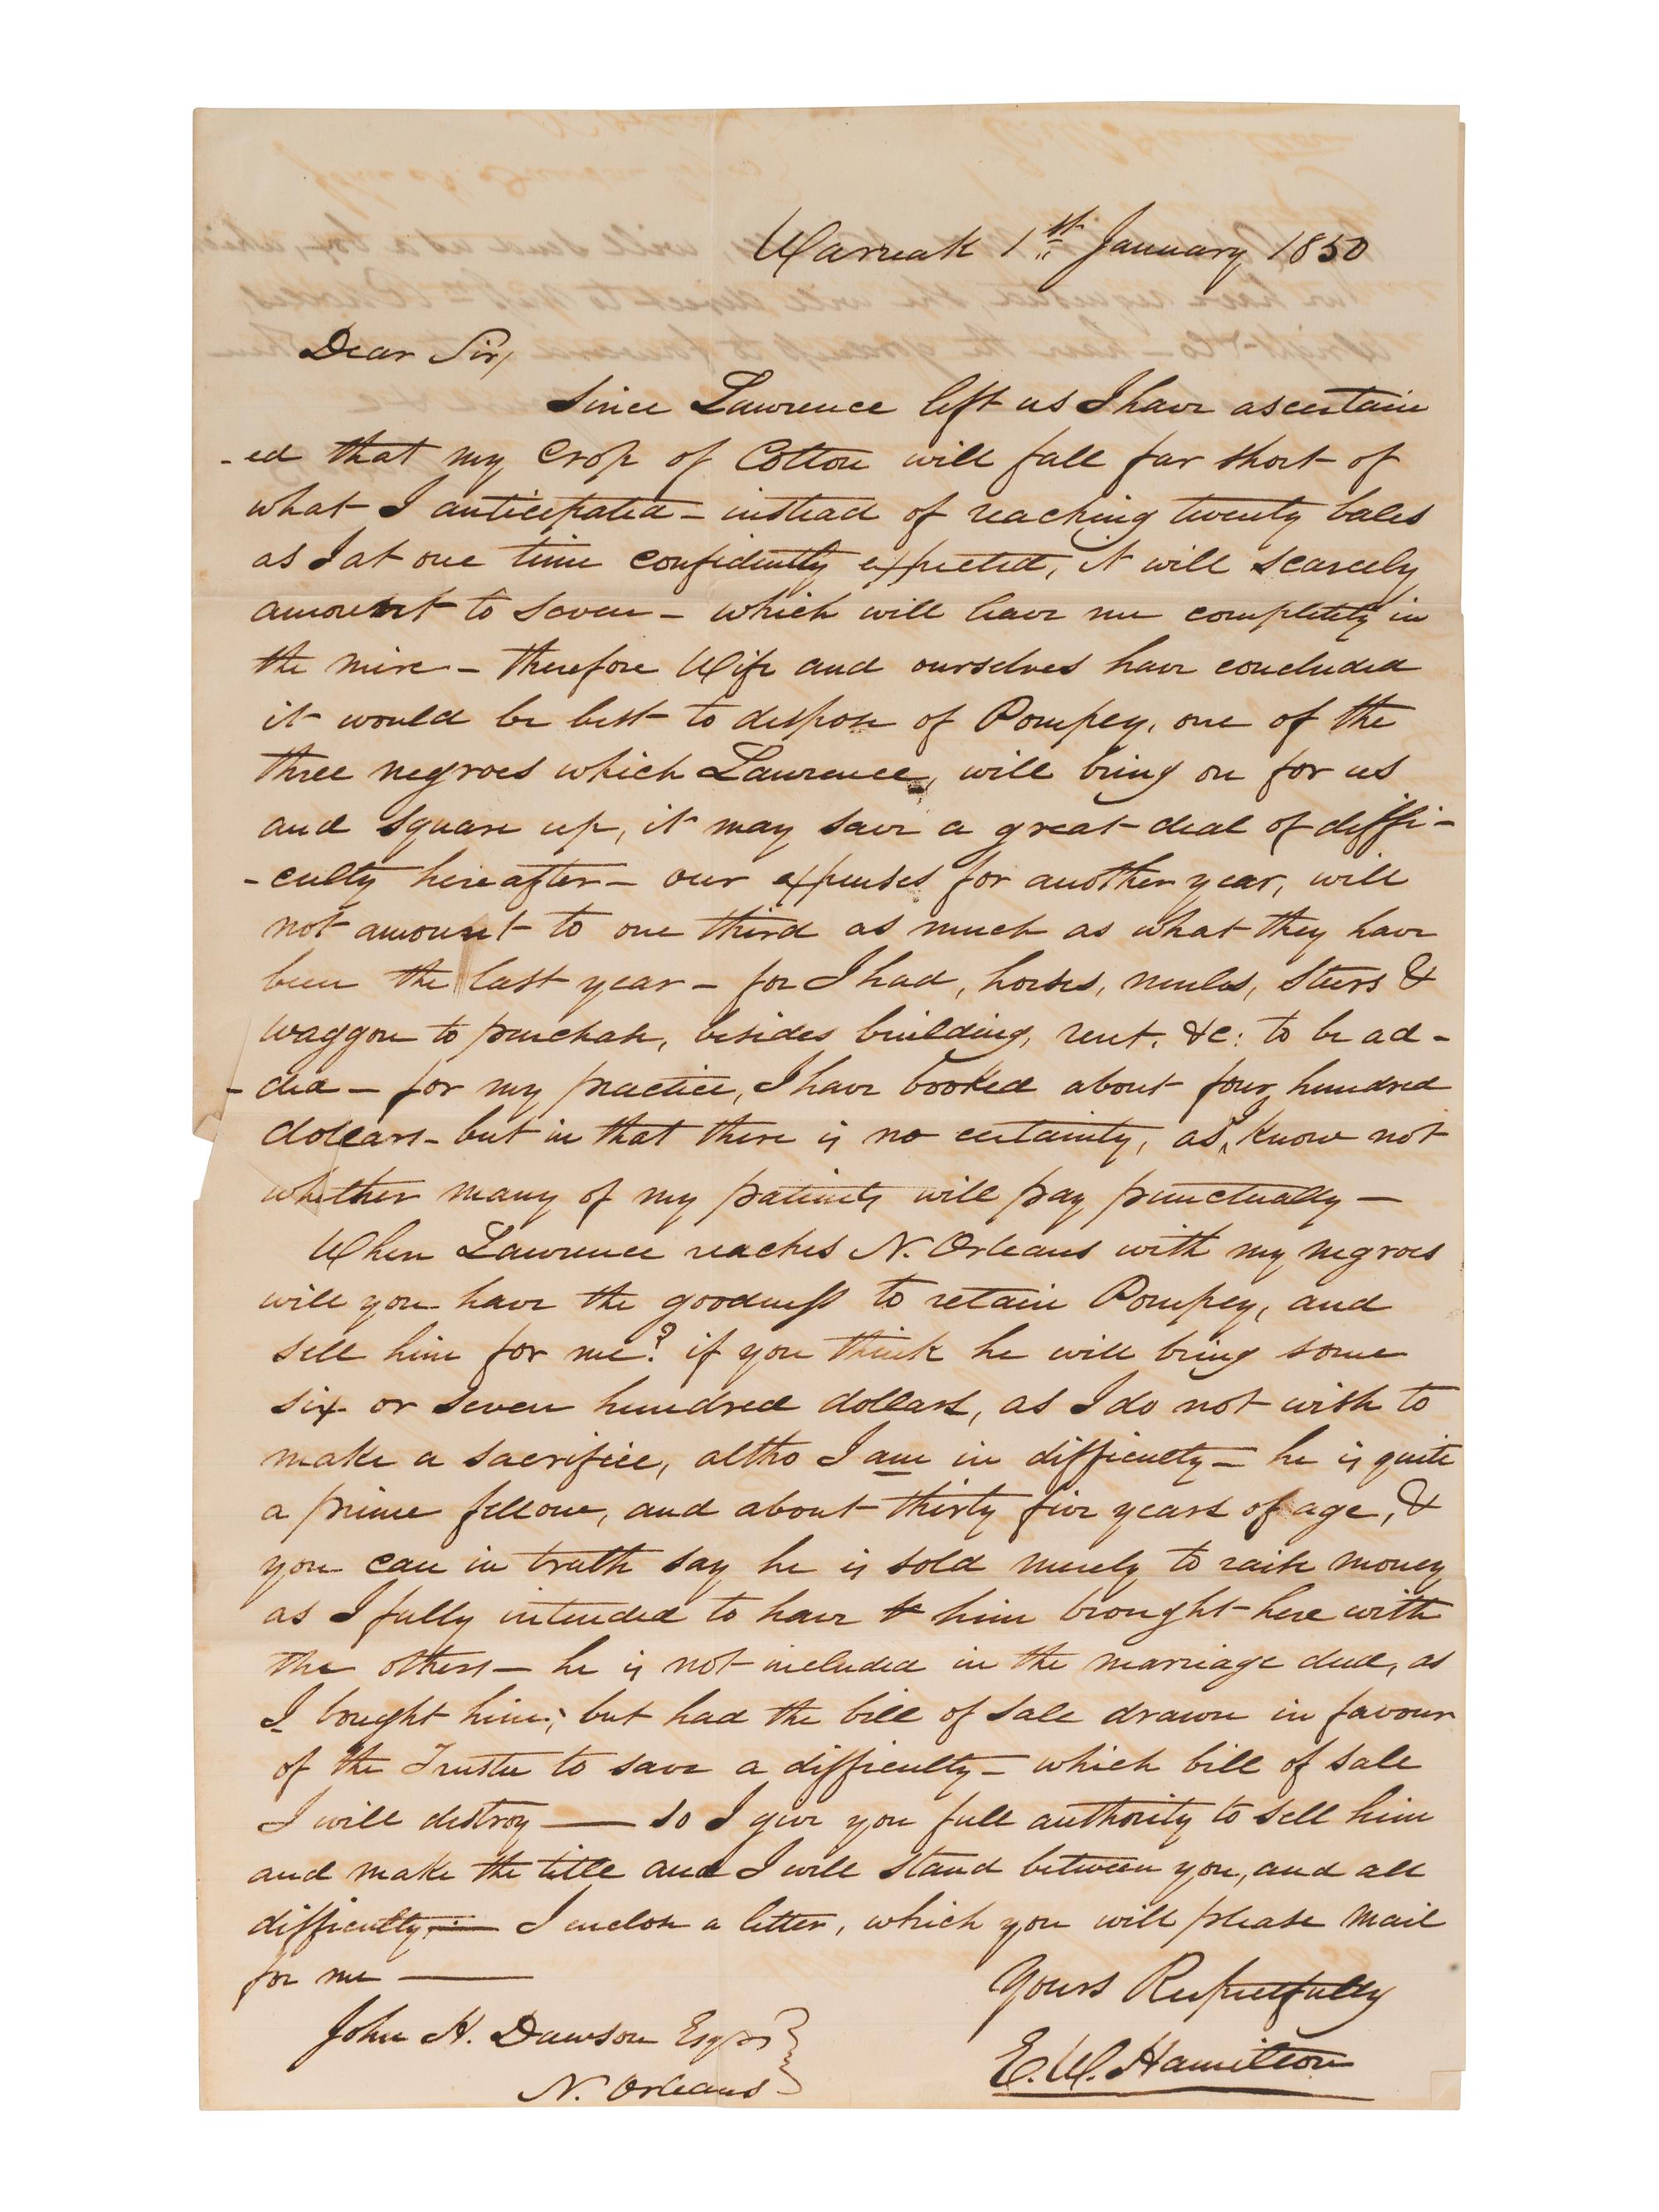 1st January 1850
Dear Sir,
Since Lawrence left us I have ascertain
-ed that my Crop of Cotton will fall far short of
what I anticipated - instead of reaching twenty bales
as I at one time confidently expected, it will scarcely
amount to seven - which will leave me completely in
the mire - therefore Wife and ourselves have concluded
it would be best to dispose of Pompey, one of the
three negroes which Lawrence, will bring on for us
and square up, it may save a great deal of diffi-
-culty hereafter - our expenses for another year, will
not amount to one third as much as what they have
been the last year - for I had, horses, mules, Steers &
waggon to purchase, besides building, rent, &c: to be ad-
-ded - for my practice, I have booked about four hundred
dollars - but in that there is no certainty, as I know not
whether many of my patients will pay punctually -
When Lawrence reaches N. Orleans with my negroes
will you have the goodness to retain Pompey, and
sell him for me? if you think he will bring some
six or seven hundred dollars, as I do not wish to
make a sacrifice, altho I am in difficulty - he is quite
a prime fellow, and about thirty five years of age, &
you can in truth say he is sold merely to raise money
as I fully intended to have him brought here with
the others - he is not included in the marriage deed, as
I bought him; but had the bill of sale drawn in favour
of the Trustee to save a difficulty - which bill of sale
I will destroy — so I give you full authority to sell him
and make the title and I will stand between you, and all
difficulty — I enclose a letter, which you will please mail
for me —
Yours Respectfully
E. W. Hamilton
John H. Dawson Esqr
N. Orleans